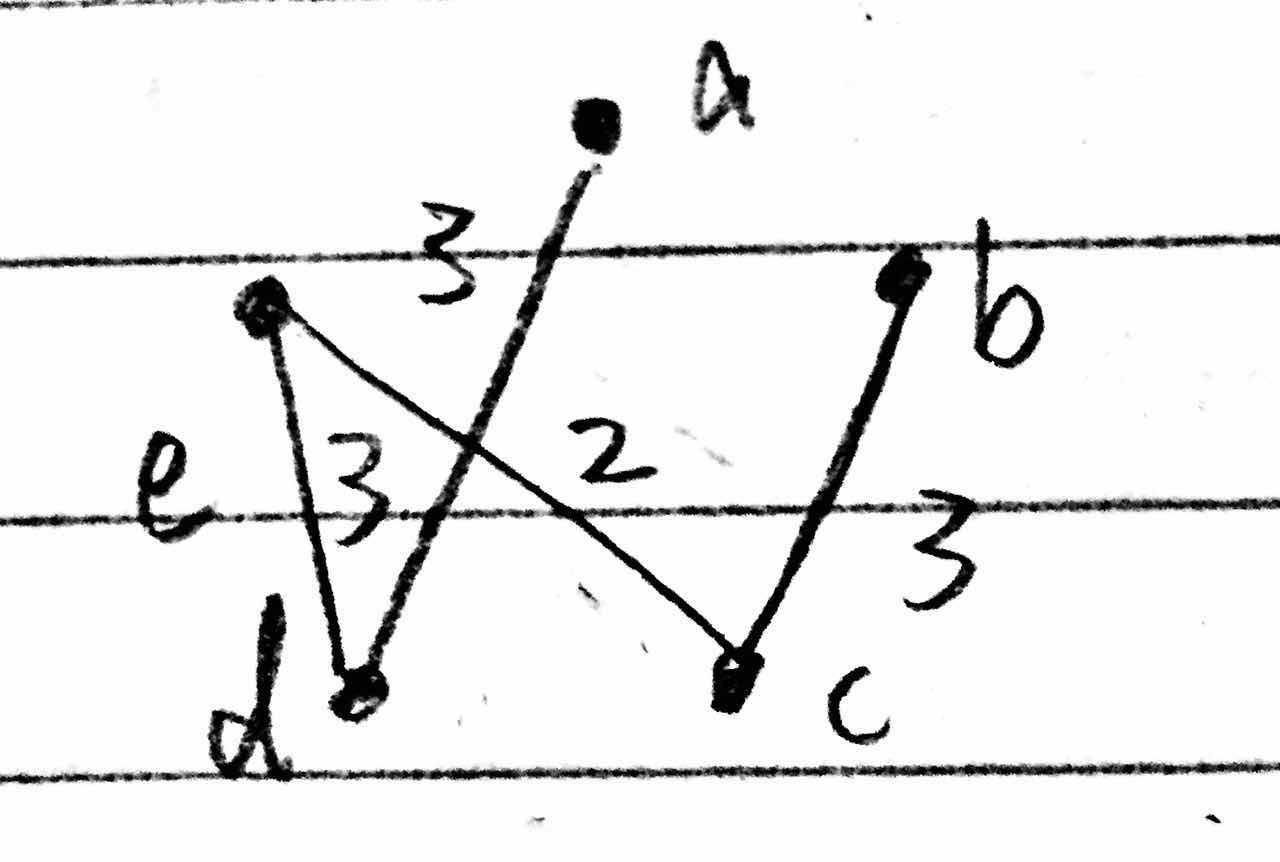 a
3
b
e
3
2
3
d
c